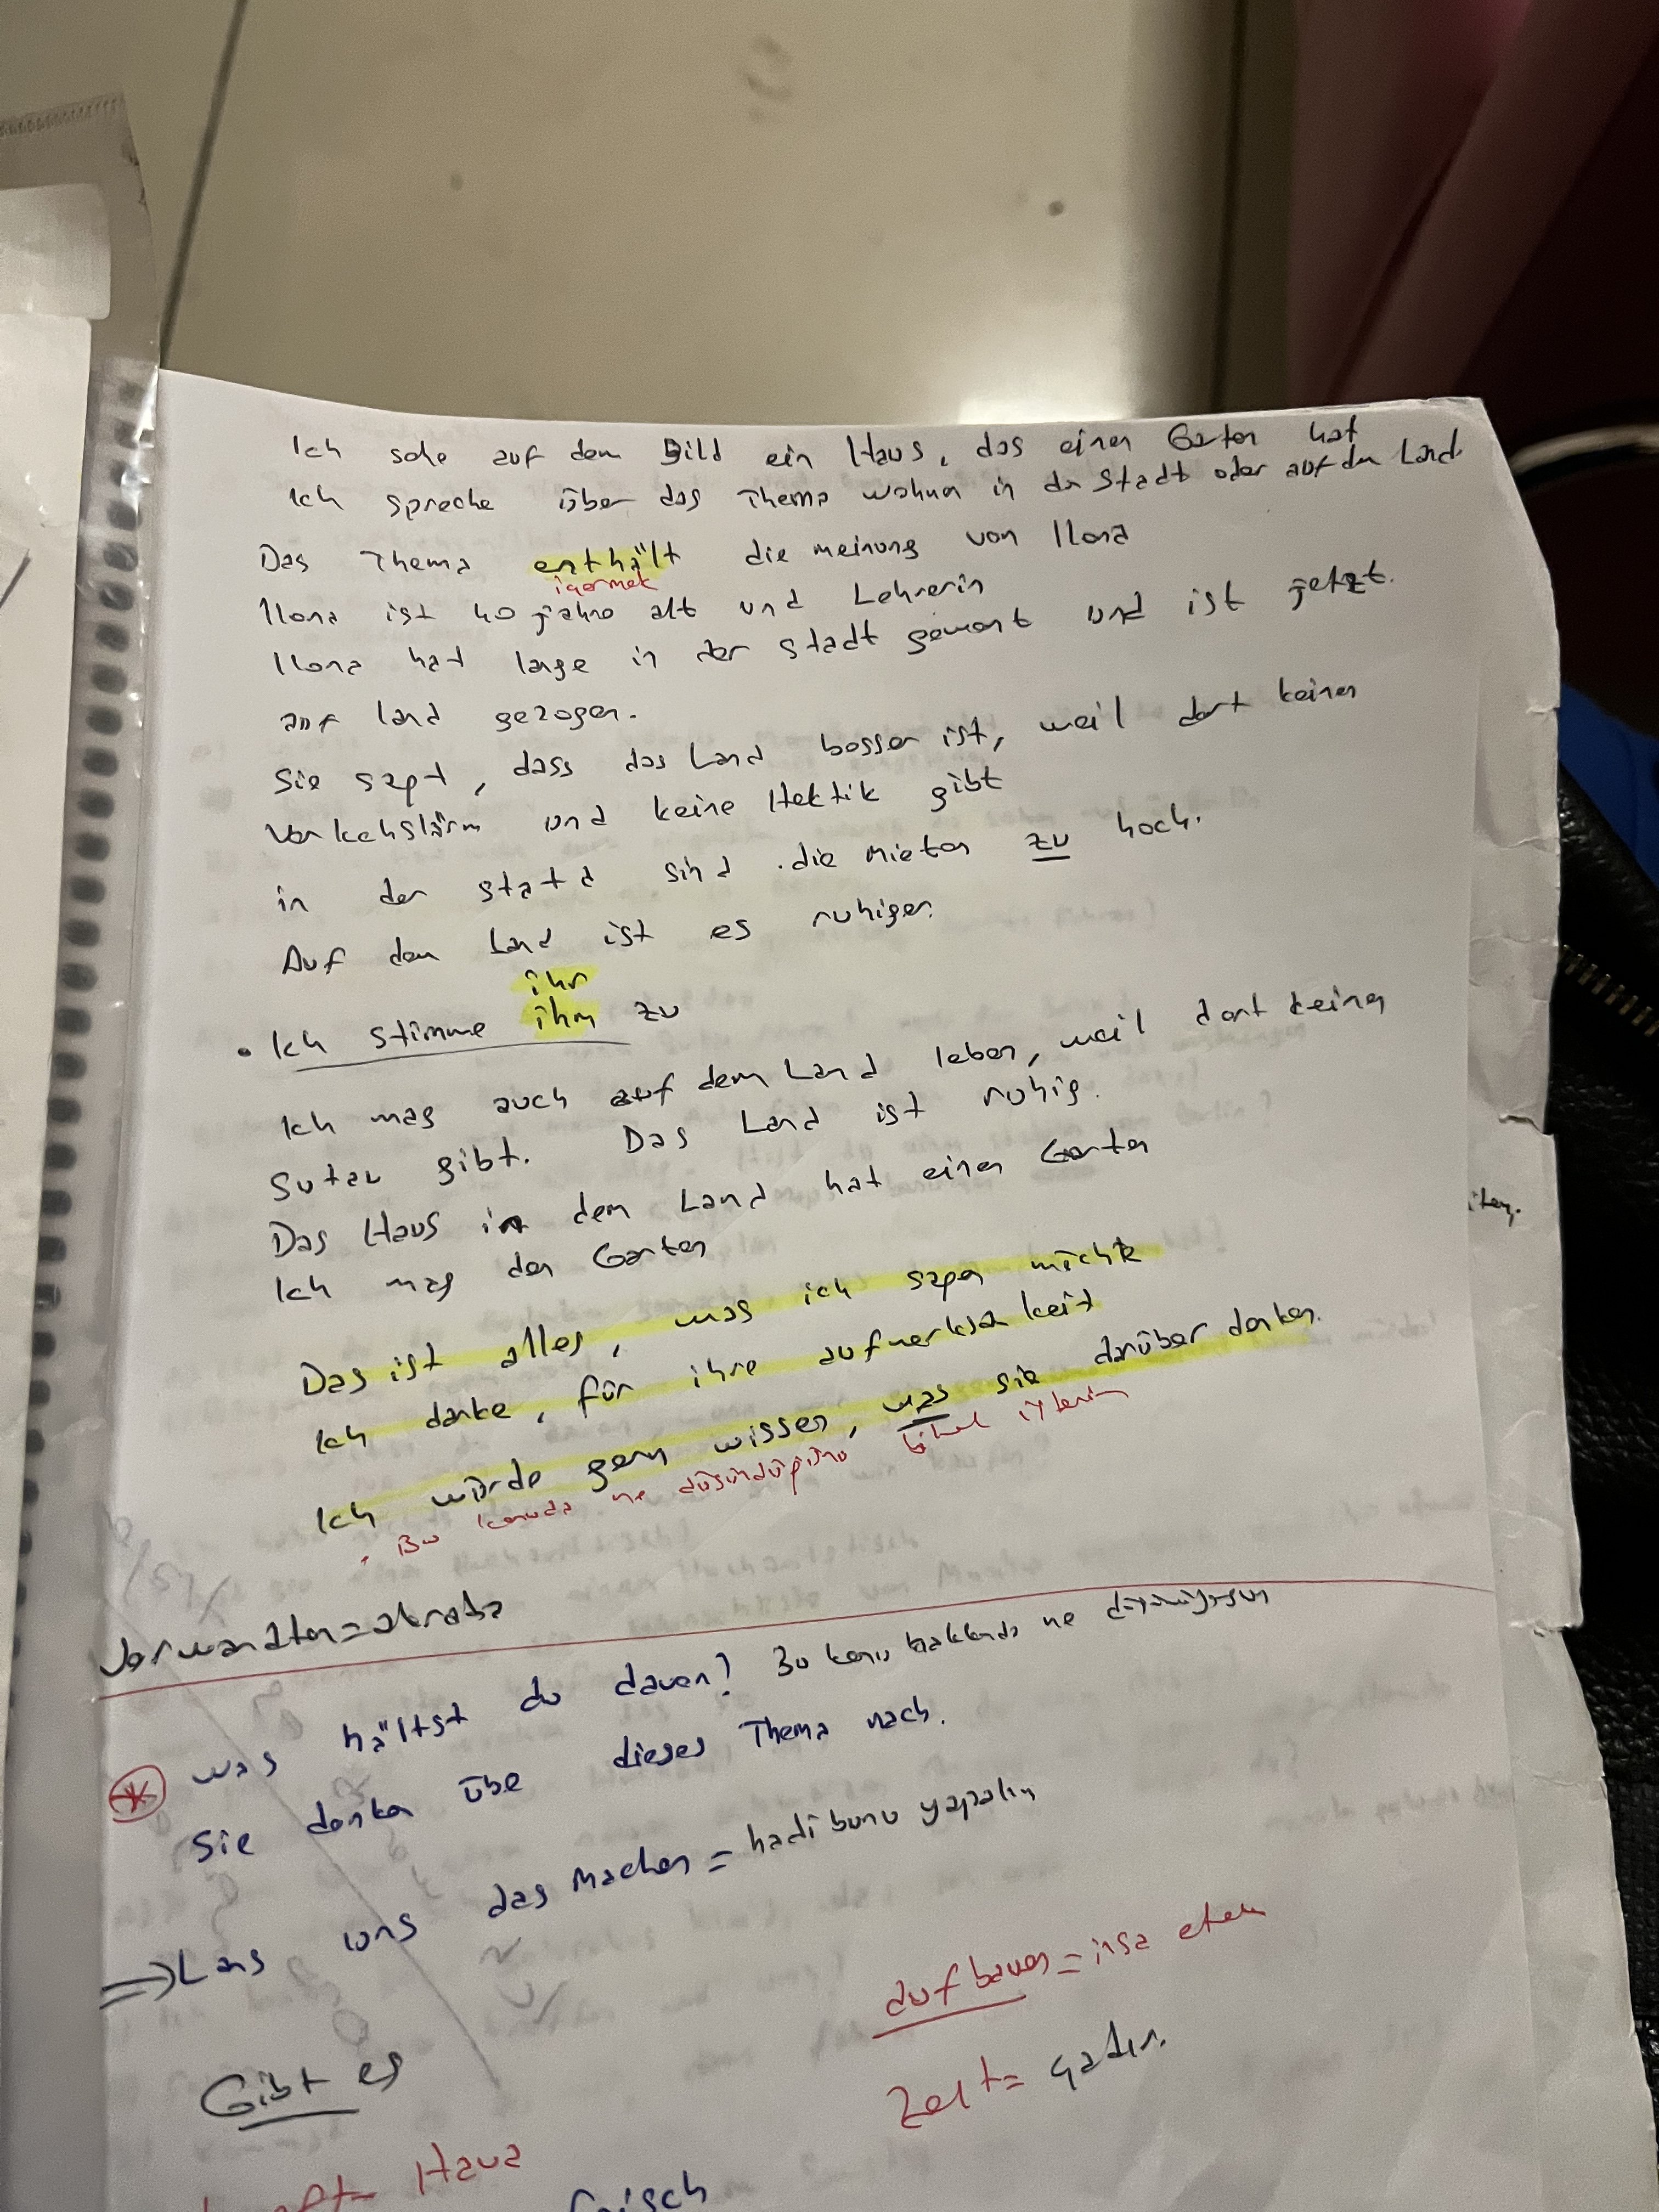 Ich sehe auf dem Bild ein Haus, das einen Garten hat
Ich spreche über das Thema wohnen in der Stadt oder auf dem Land.
Das Thema enthält die meinung von Ilona
içermek
Ilona ist 40 jahre alt und Lehrerin
Ilona hat lange in der stadt gewont und ist jetzt.
auf land gezogen.
Sie sagt, dass das Land besser ist, weil dort keinen
Verkehslärm und keine Hektik gibt
in der statd sind die Mieten zu hoch.
Auf dem Land ist es ruhiger.
ihr
• Ich stimme ihm zu
Ich mag auch auf dem Land leben, weil dort keinen
gibt. Das Land ist ruhig.
Das Haus in dem Land hat einen Garten
Ich mag den Garten
Das ist alles, was ich sagen möchte
Ich danke, für ihre aufmerksakeit
Ich würde gern wissen, was sie darüber denken.
Bu konuda ne düşündüğünü bilmek isterim
Verwandten = akraba
was hältst du davon? Bu konu hakkında ne düşünüyorsun
Sie denken übe dieses Thema nach.
⇒ Las uns das Machen = hadi bunu yapalım
aufbauen = inşa etmek
Gibt es
Zelt = çadır.
Hava
frisch